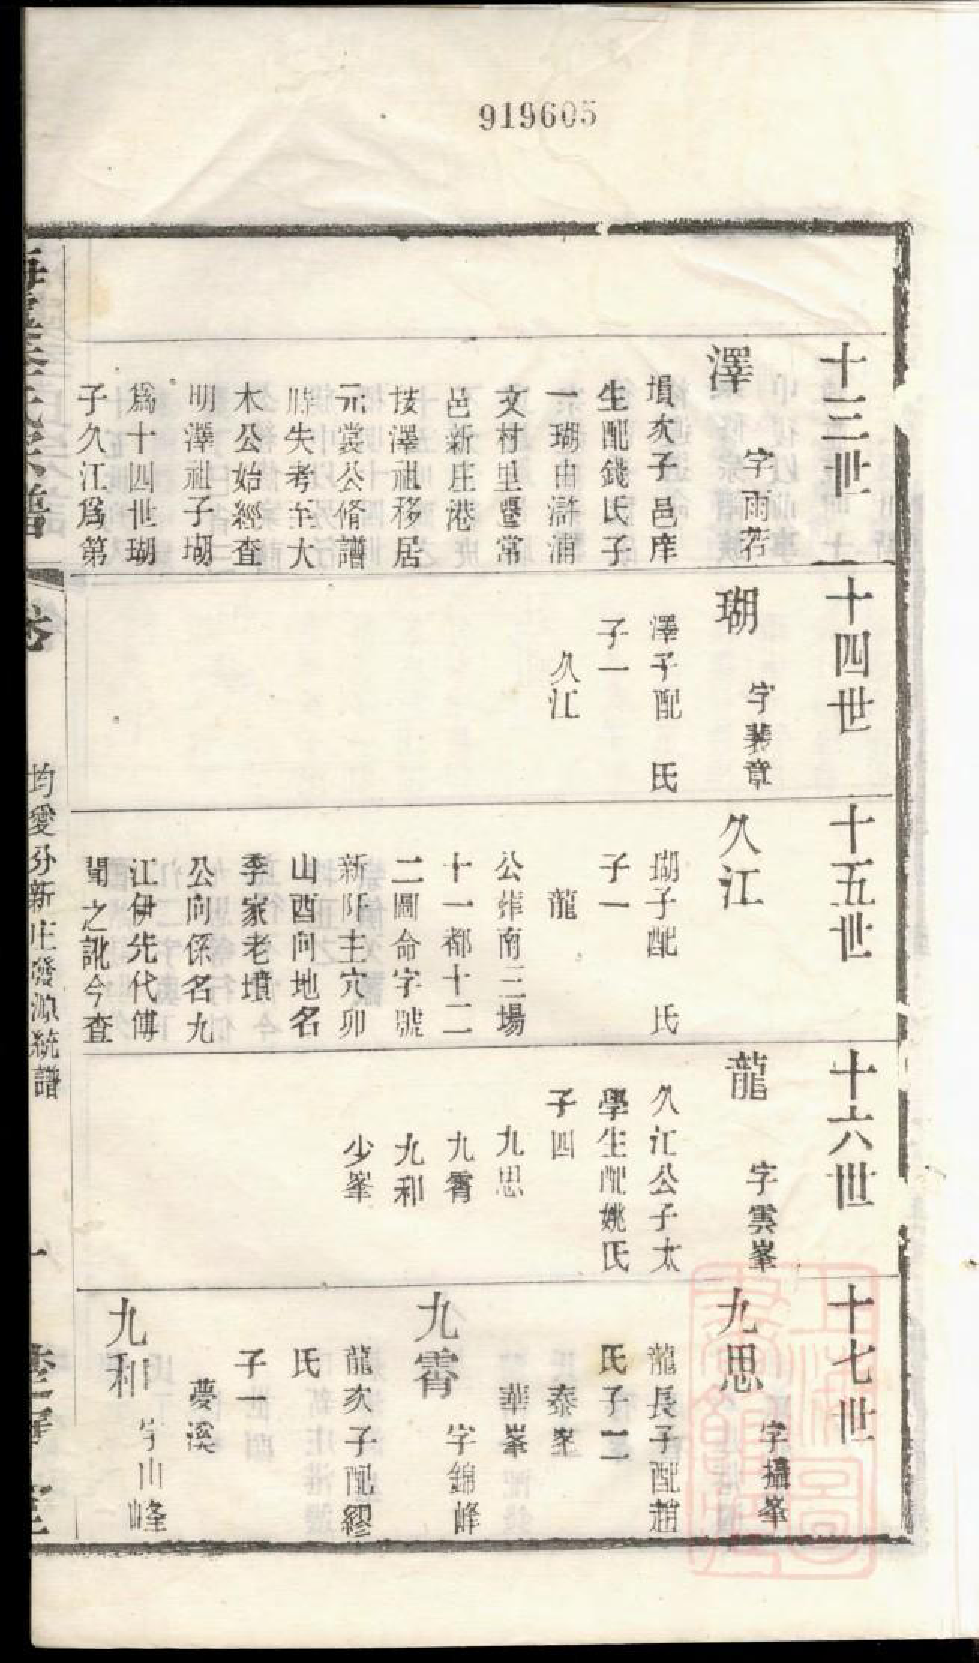 919605
十三世
澤
字雨若
塤次子邑庠
生配錢氏子
一瑚由滸浦
文村里暨常
邑新庄港
按澤祖移居
元裳公脩譜
時失考至大
木公始經查
明澤祖子瑚
爲十四世瑚
子久江爲第
十四世
瑚
字裴章
澤子配 氏
子一
久江
十五世
久江
瑚子配 氏
子一
龍
公葬南三場
十一都十二
二圖命字號
新阡主穴卯
山酉向地名
季家老墳
公向係名九
江伊先代傳
聞之訛今查
十六世
龍
字雲峯
久江公子太
學生配姚氏
子四
九思
九霄
九和
少峯
十七世
九思
字攝峯
龍長子配趙
氏子二
泰峯
華峯
九霄
字錦峰
龍次子配繆
氏
子一
夢溪
九和
字山峰
氏家譜
卷
均愛分新庄發源統譜
上海圖書館藏